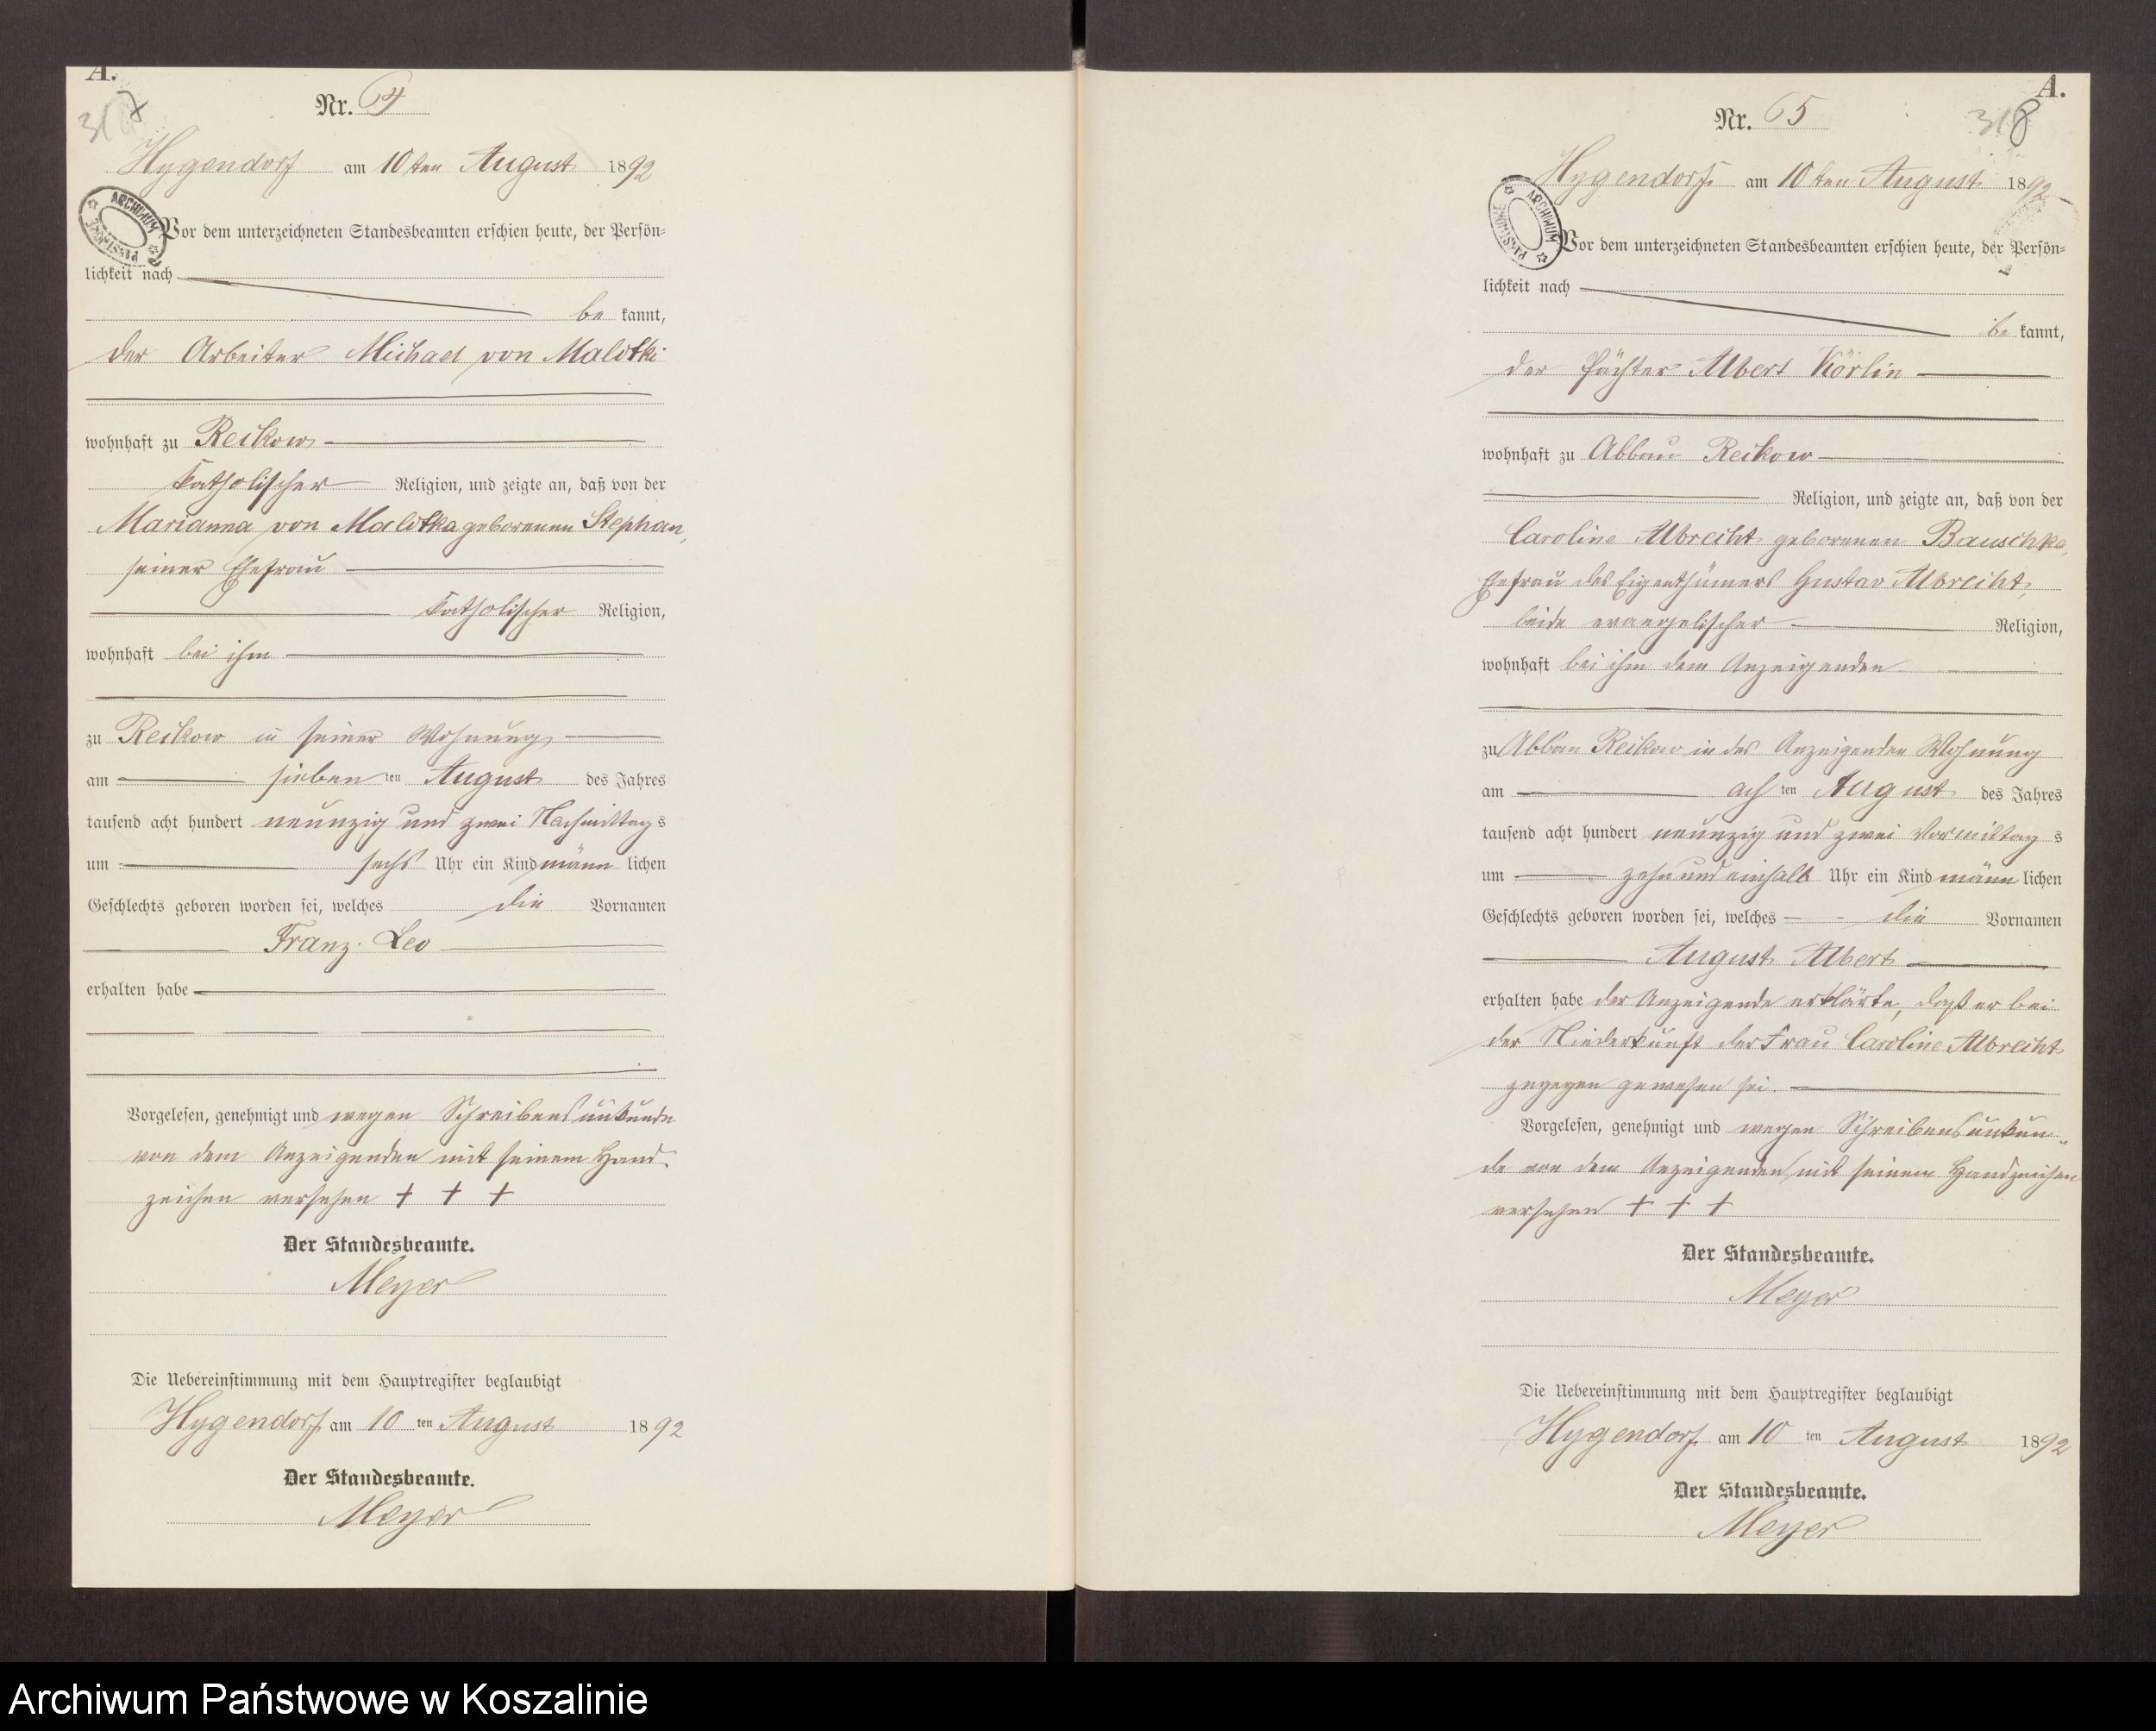 A.
317
Nr. 64
Hygendorf am 10ten August 1892
ARCHIWUM PAŃSTWOWE
Vor dem unterzeichneten Standesbeamten erschien heute, der Persön=
lichkeit nach
be kannt,
der Arbeiter Michael von Malotki
wohnhaft zu Reckow
katholischer Religion, und zeigte an, daß von der
Marianna von Malotka geborenen Stephan,
seiner Ehefrau
katholischer Religion,
wohnhaft bei ihm
zu Reckow in seiner Wohnung
am sieben ten August des Jahres
tausend acht hundert neunzig und zwei Nachmittags
um sechs Uhr ein Kind männ lichen
Geschlechts geboren worden sei, welches die Vornamen
Franz Leo
erhalten habe
Vorgelesen, genehmigt und wegen Schreibensunkunde
von dem Anzeigenden mit seinem Hand-
zeichen versehen + + +
Der Standesbeamte.
Meyer
Die Uebereinstimmung mit dem Hauptregister beglaubigt
Hygendorf am 10 ten August 1892
Der Standesbeamte.
Meyer
A.
318
Nr. 65
Hygendorf am 10ten August 1892
ARCHIWUM PAŃSTWOWE
Vor dem unterzeichneten Standesbeamten erschien heute, der Persön=
lichkeit nach
be kannt,
der Pächter Albert Körlin
wohnhaft zu Abbau Reckow
Religion, und zeigte an, daß von der
Caroline Albrecht geborenen Bauschke,
Ehefrau des Eigenthümers Gustav Albrecht,
beide evangelischer Religion,
wohnhaft bei ihm dem Anzeigenden
zu Abbau Reckow in des Anzeigenden Wohnung
am ach ten August des Jahres
tausend acht hundert neunzig und zwei Vormittag s
um zehn und einhalb Uhr ein Kind männ lichen
Geschlechts geboren worden sei, welches die Vornamen
August Albert
erhalten habe der Anzeigende erklärte, daß er bei
der Niederkunft der Frau Caroline Albrecht
zugegen gewesen sei.
Vorgelesen, genehmigt und wegen Schreibensunkun-
de von dem Anzeigenden mit seinem Handzeichen
versehen + + +
Der Standesbeamte.
Meyer
Die Uebereinstimmung mit dem Hauptregister beglaubigt
Hygendorf am 10 ten August 1892
Der Standesbeamte.
Meyer
Archiwum Państwowe w Koszalinie